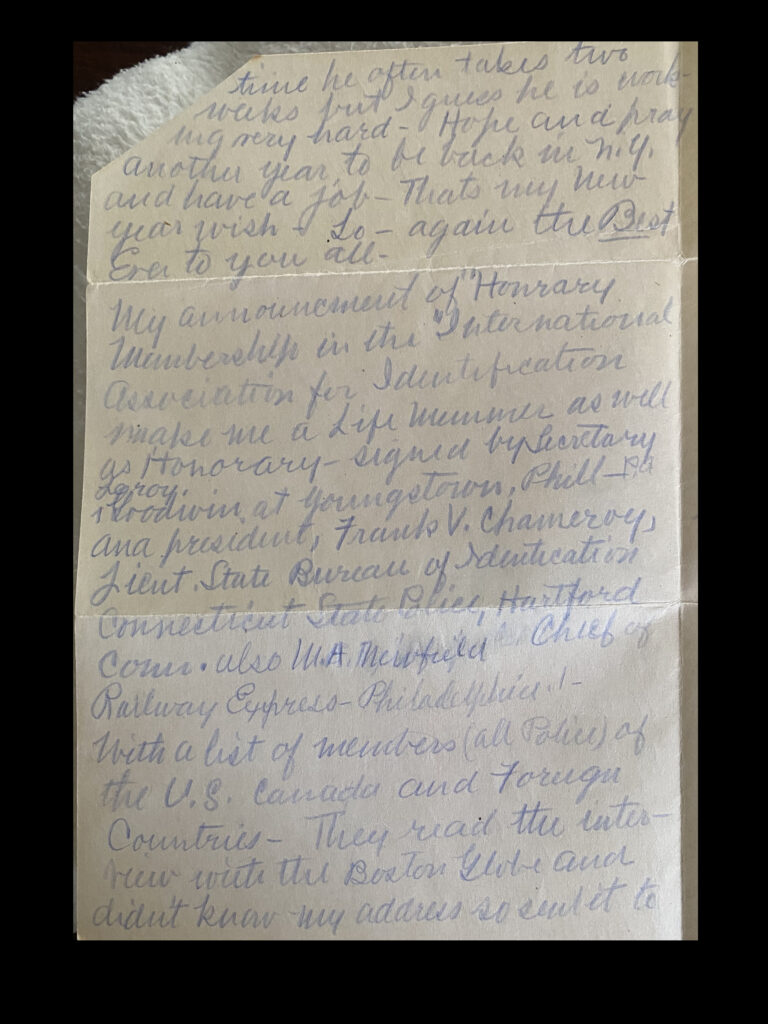 time he often takes two
weeks but I guess he is work-
ing very hard - Hope and pray
another year, to be back in N.Y.
and have a job - Thats my New
year wish - So - again the Best
Ever to you all -
My announcment of "Honrary
Membership in the "International
Association for Identification
make me a Life Memmer as well
as Honorary - signed by Secretary
Leroy
Goodwin at Youngstown, Phill - Pa
and president, Frank V. Chameroy,
Lieut. State Bureau of Identication
Connecticut State Police, Hartford
Conn. also W.A. Newfield Chief of
Railway Express - Philadelphia. ! -
With a list of members (all Police) of
the U.S. Canada and Foreign
Countries - They read the inter-
view with the Boston Globe and
didn't know my address so sent it to